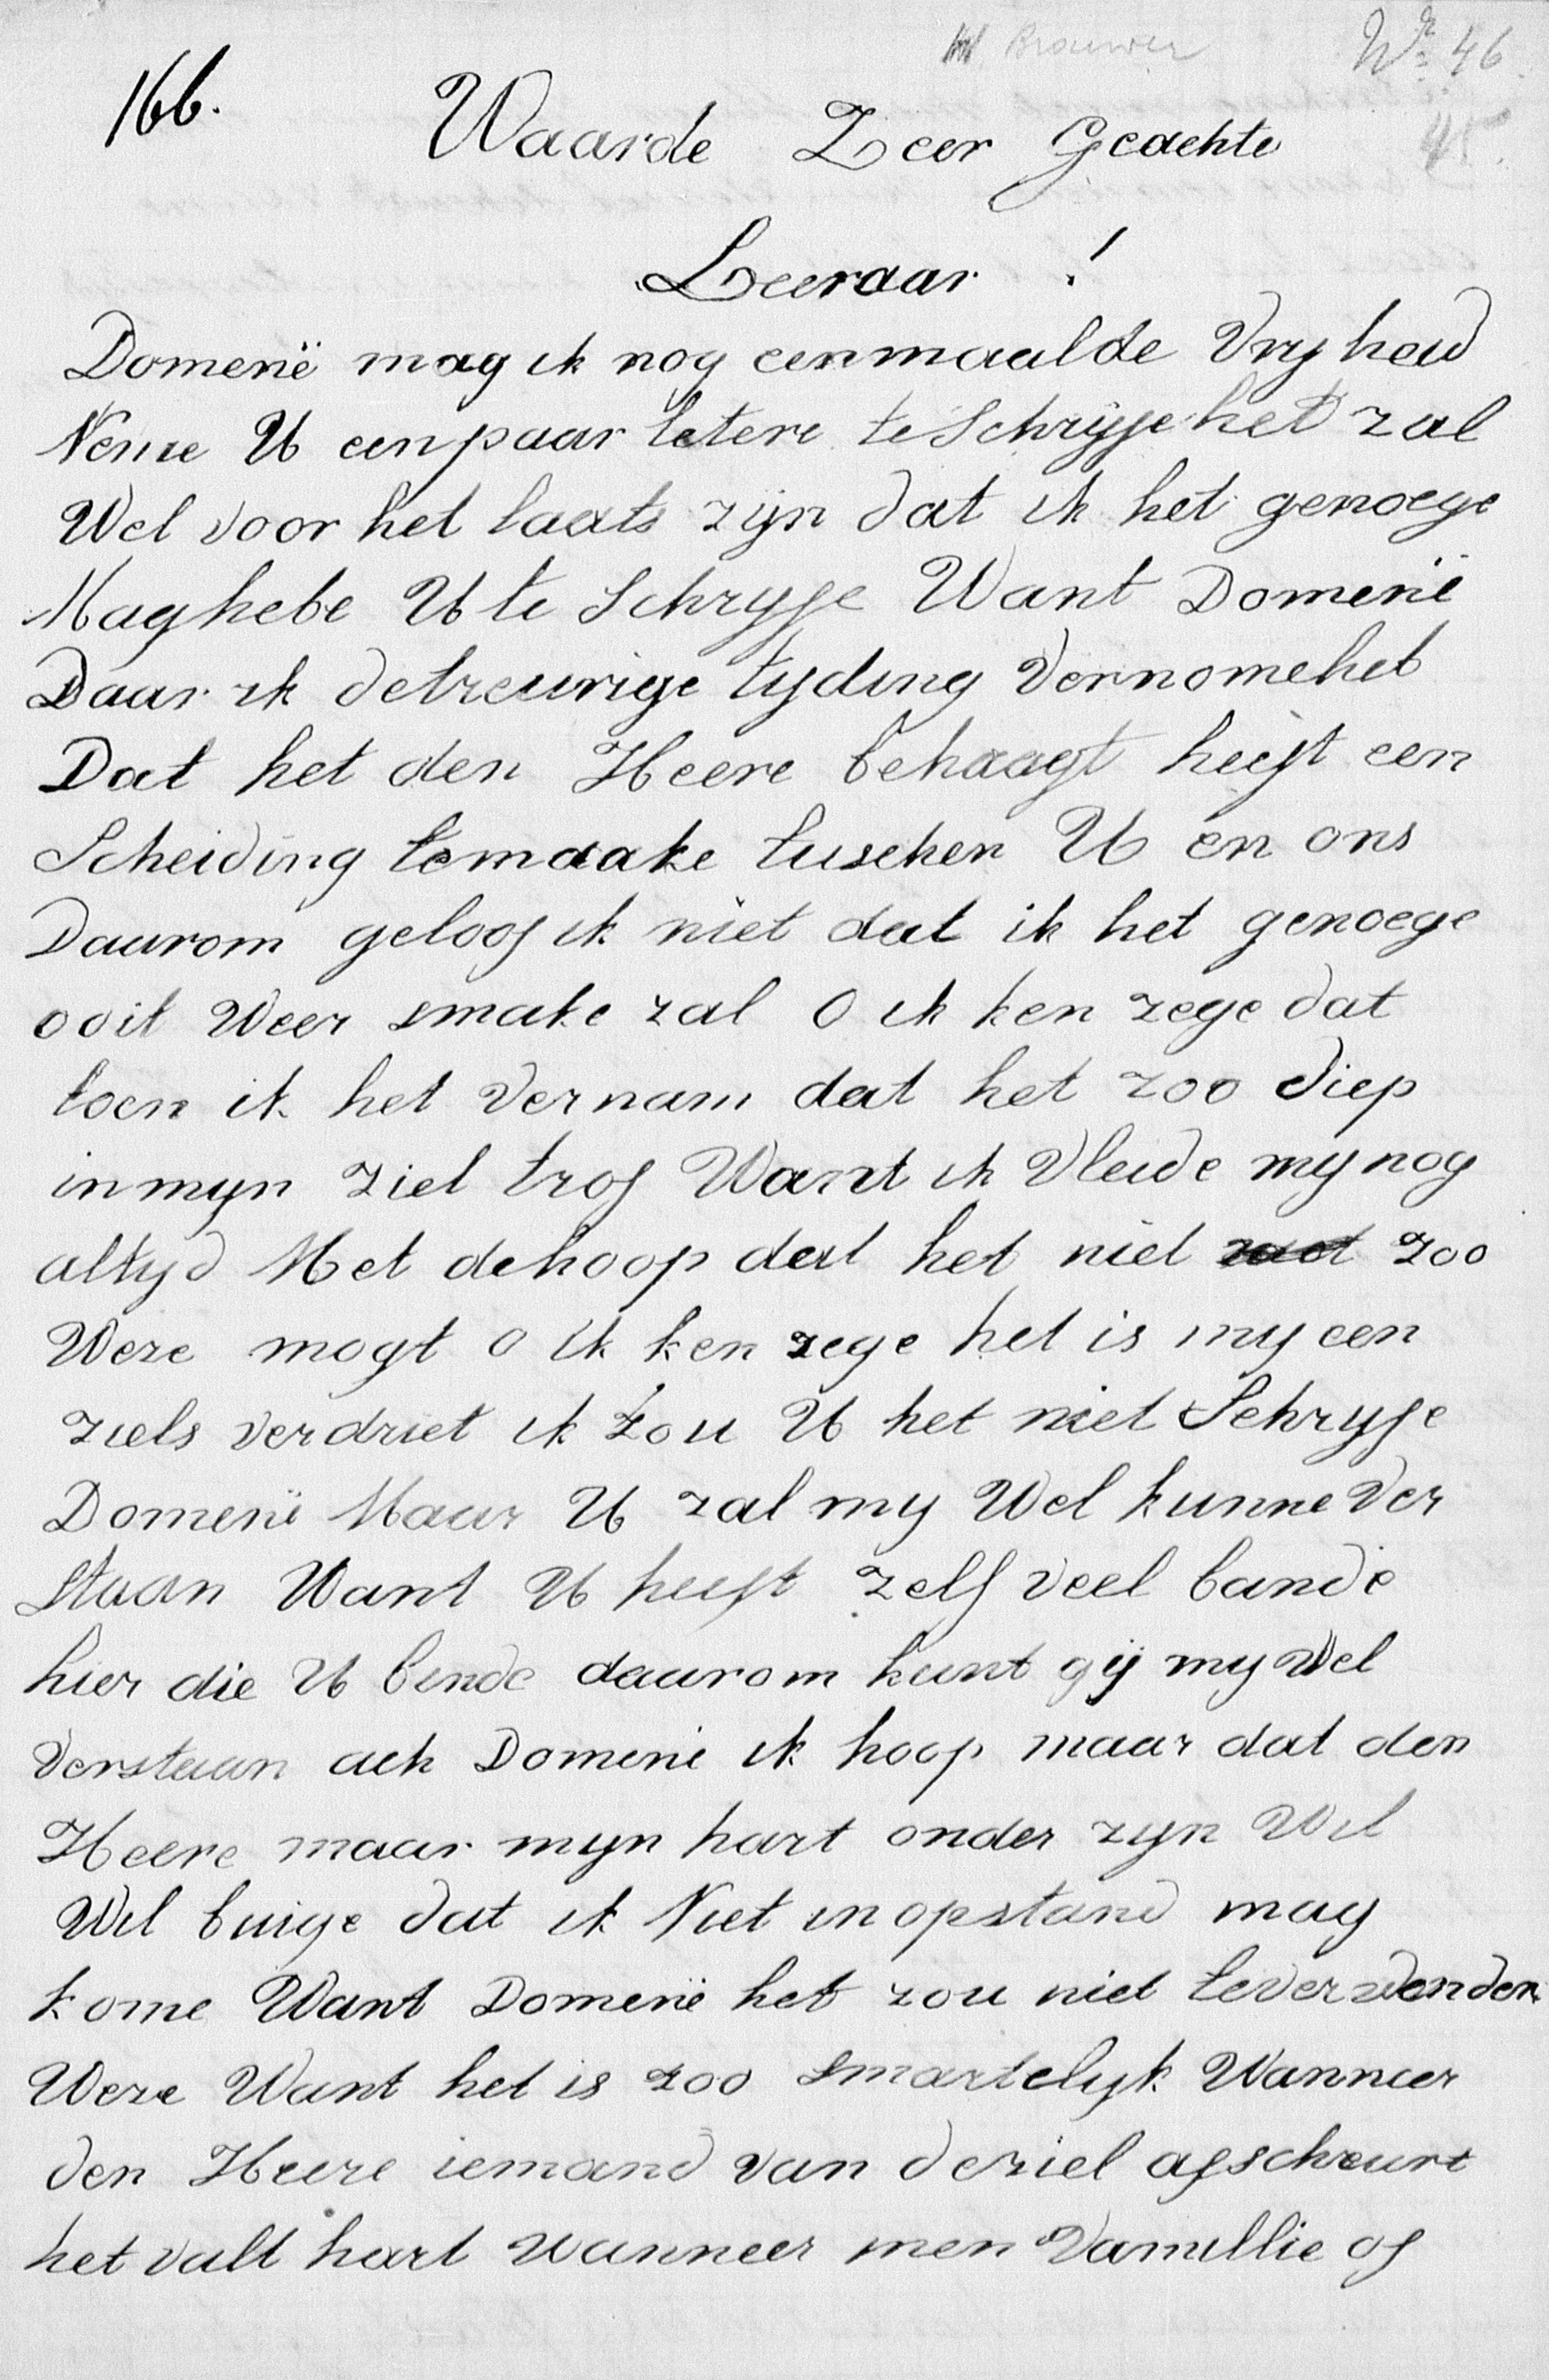 Brouwer No 46
166. Waarde Zeer Geachte 45.
Leeraar !
Domenië mag ik nog eenmaalde Vryheid
Neme U eenpaar letere te Schryfe het zal
Wel voor het laats zijn dat ik het genoege
Maghebe U te Schryfe Want Domenië
Daar ik detreurige tyding Vernomeheb
Dat het den Heere behaagt heeft een
Scheiding temaake tuschen U en ons
Daarom geloof ik niet dat ik het genoege
ooit Weer smake zal O ik ken zege dat
toen ik het Vernam dat het zoo diep
inmyn ziel trof Want ik Vleide my nog
altyd Met dehoop dat het niet zoo
Weze mogt o ik ken zege het is my een
ziels verdriet ik zou U het niet Schryfe
Domenië Maar U zal my Wel kunne Ver
staan Want U heeft zelf veel bande
hier die U binde daarom kunt gij my Wel
Verstaan ach Domenië ik hoop maar dat den
Heere maar myn hart onder zyn Wil
Wil buige dat ik Niet in opstand mag
kome Want Domenië het zou niet teverwonderen
Weze Want het is zoo smartelyk Wanneer
den Heere iemand van deziel afscheurt
het valt hart wanneer men Vamillie of